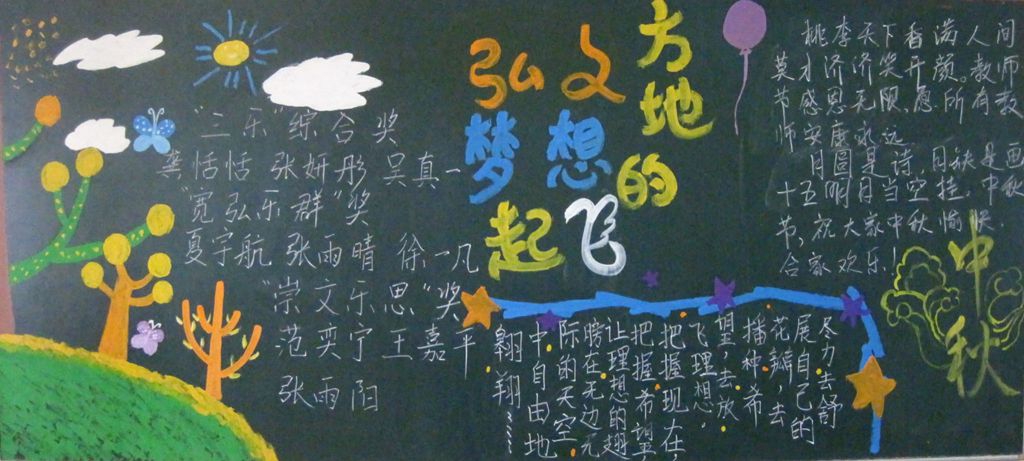 "三乐"综合奖
龚恬恬 张妍彤 吴真一
"宽弘乐群"奖
夏宇航 张雨晴 徐一凡
"崇文乐思"奖
范奕宁 王嘉平
张雨阳
弘文
梦想
起飞
方地
的
桃李天下香满人间
英才济济笑开颜。教师
节感恩无限,愿所有教
师安康永远
月圆是诗,月缺是画
十五明月当空挂,中秋
节,祝大家中秋愉快.
合家欢乐!
中秋
冬力去舒
展自己的
花瓣,去
播种希
望,去放
飞理想,
把握现在,
把握希望
让理想的翅
膀在无边无
际的天空
中自由地
翱翔……